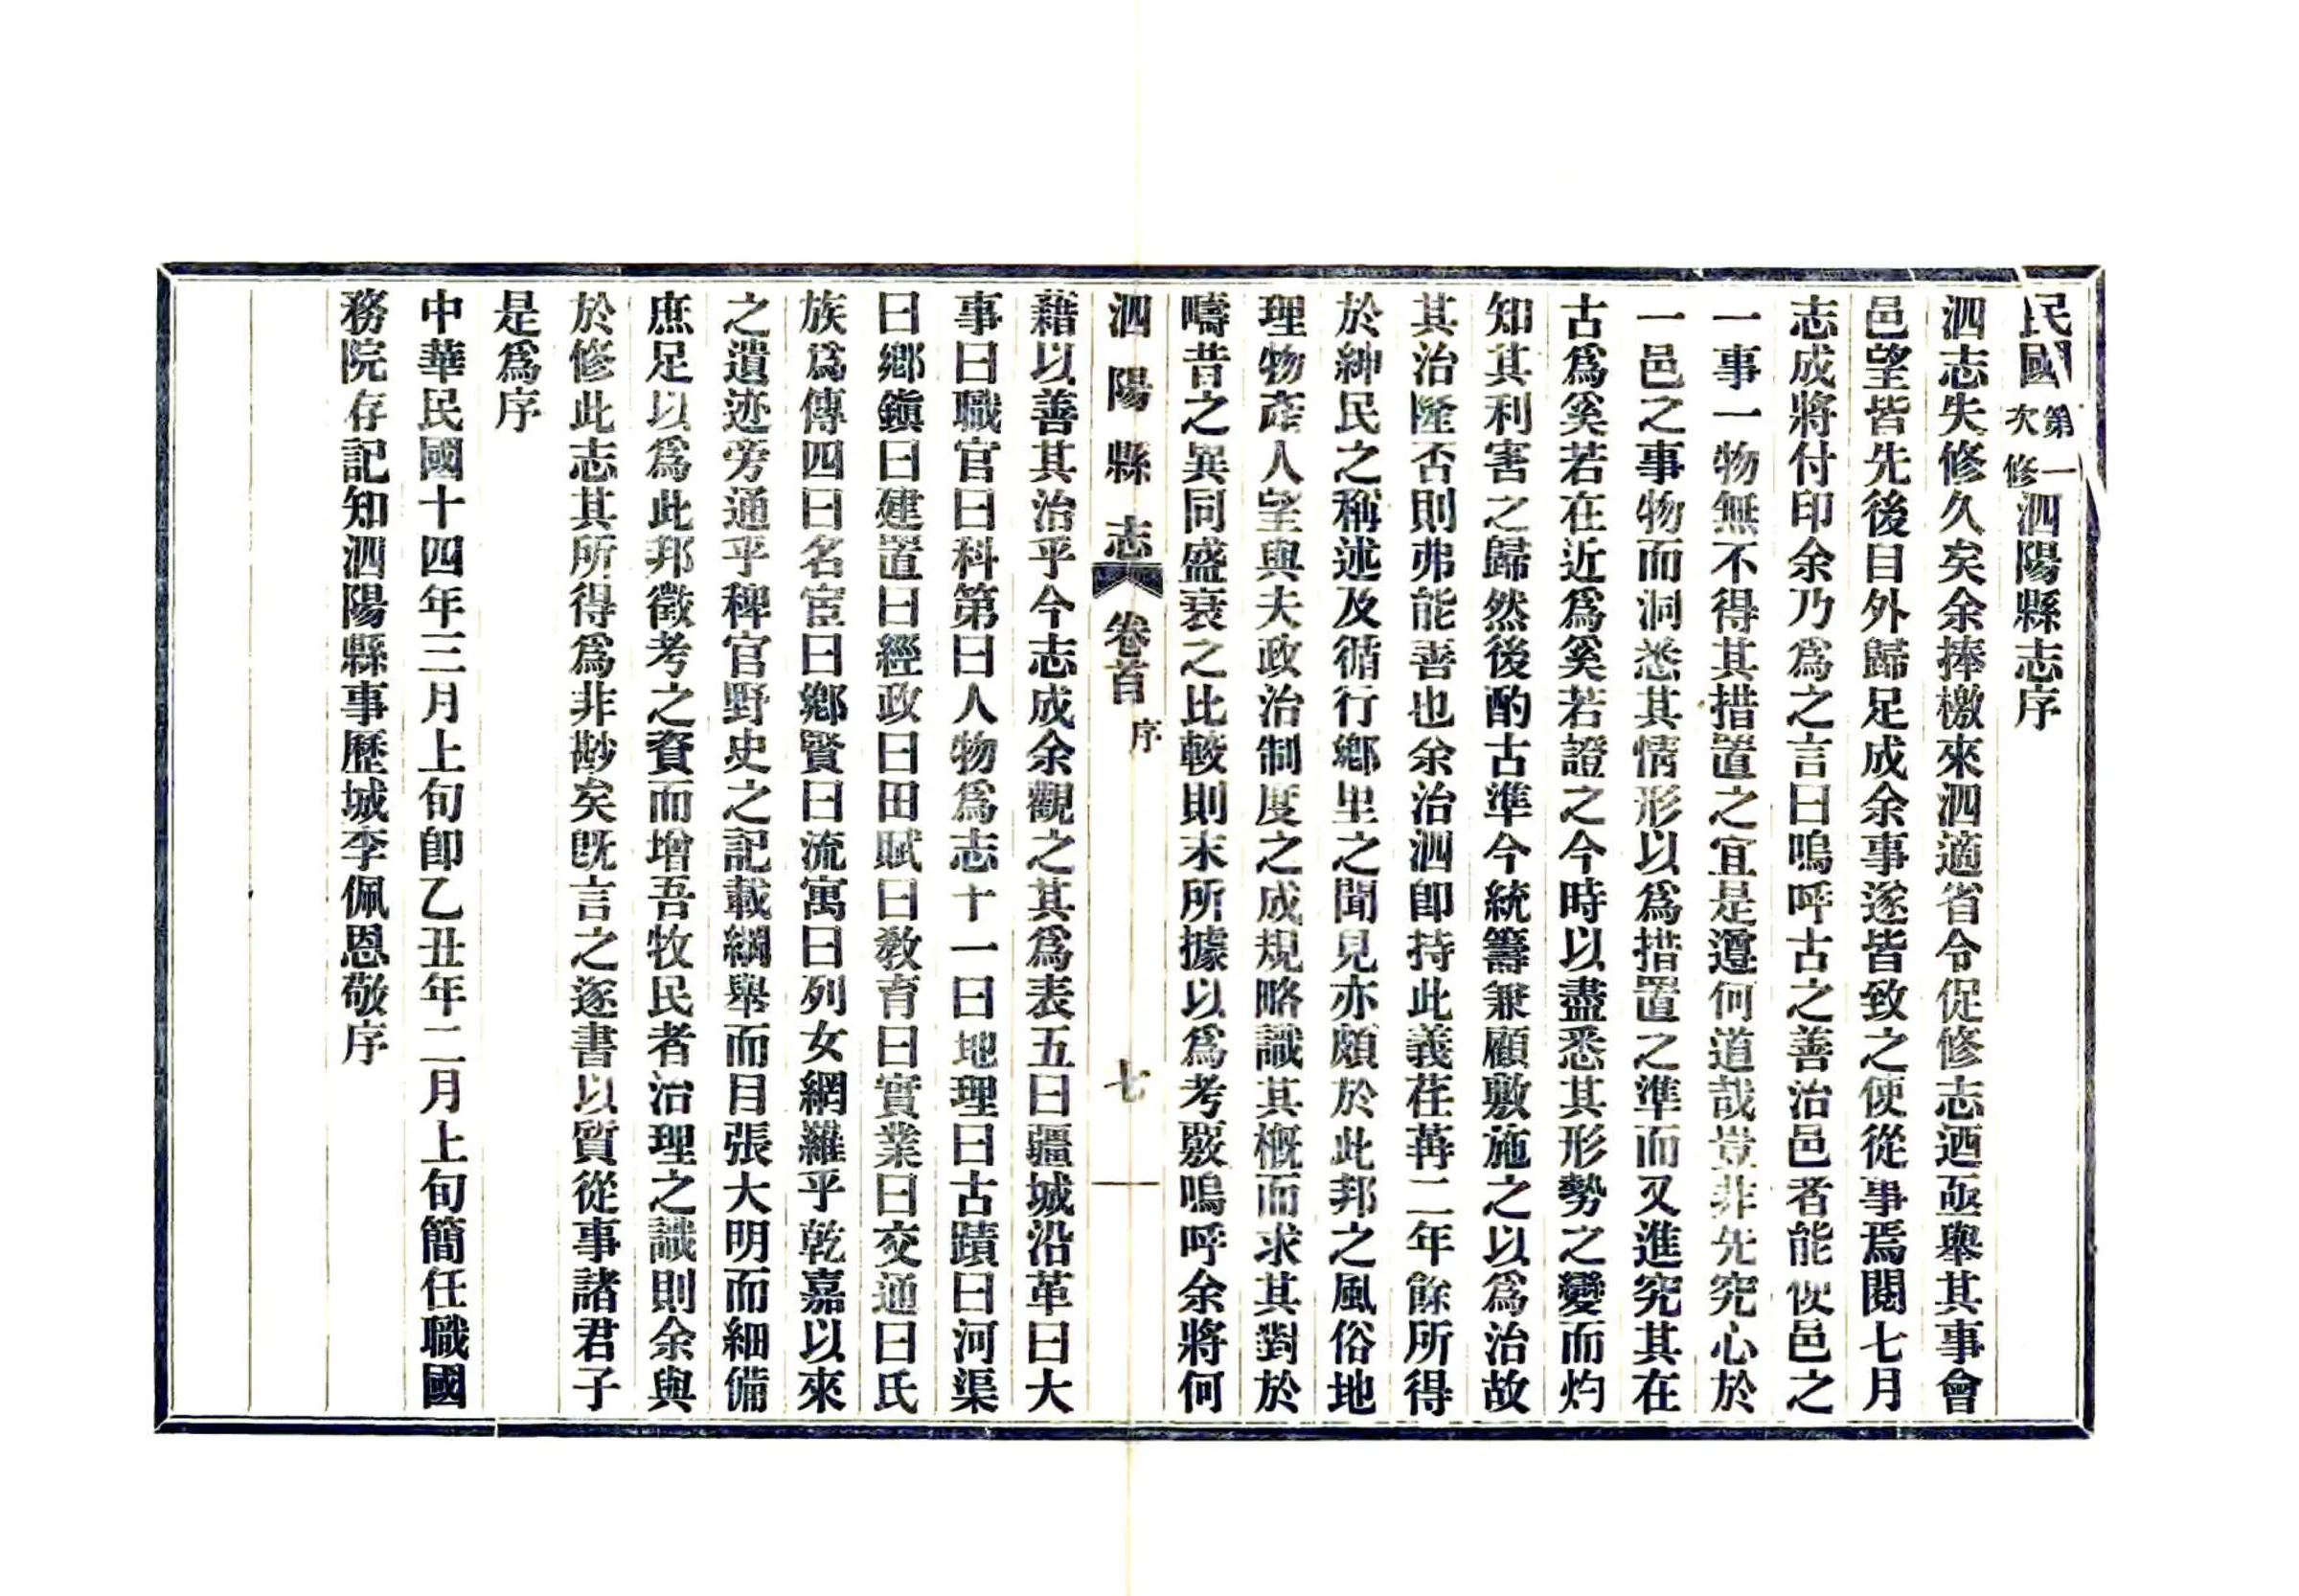 民國第一次修泗陽縣志序
泗志失修久矣余捧檄來泗適省令促修志迺亟舉其事會
邑望皆先後自外歸足成余事遂皆致之使從事焉閱七月
志成將付印余乃爲之言曰嗚呼古之善治邑者能使邑之
一事一物無不得其措置之宜是遵何道哉豈非先究心於
一邑之事物而洞悉其情形以爲措置之準而又進究其在
古爲奚若在近爲奚若證之今時以盡悉其形勢之變而灼
知其利害之歸然後酌古準今統籌兼顧敷施之以爲治故
其治隆否則弗能善也余治泗卽持此義茬苒二年餘所得
於紳民之稱述及循行鄉里之聞見亦頗於此邦之風俗地
理物產人望與夫政治制度之成規略識其概而求其對於
疇昔之異同盛衰之比較則末所據以爲考覈嗚呼余將何
泗陽縣志 卷首 序 七
藉以善其治乎今志成余觀之其爲表五曰疆域沿革曰大
事曰職官曰科第曰人物爲志十一曰地理曰古蹟曰河渠
曰鄉鎭曰建置曰經政曰田賦曰敎育曰實業曰交通曰氏
族爲傳四曰名宦曰鄉賢曰流寓曰列女網羅乎乾嘉以來
之遺迹旁通乎稗官野史之記載綱舉而目張大明而細備
庶足以爲此邦徵考之資而增吾牧民者治理之識則余與
於修此志其所得爲非尠矣旣言之遂書以質從事諸君子
是爲序
中華民國十四年三月上旬卽乙丑年二月上旬簡任職國
務院存記知泗陽縣事歷城李佩恩敬序